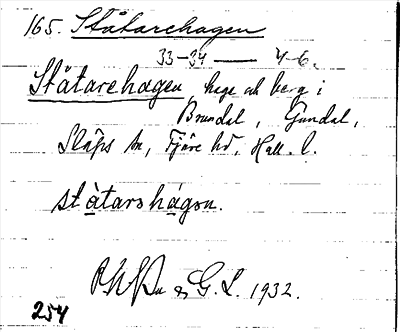 165. Ståtarehagen
33-34 — 4-6.
Ståtarehagen, hage och berg i
Brundal, Gundal,
Släps sn, Fjäre hd, Hall. l.
ståtarshágon.
& G. L. 1932.
254